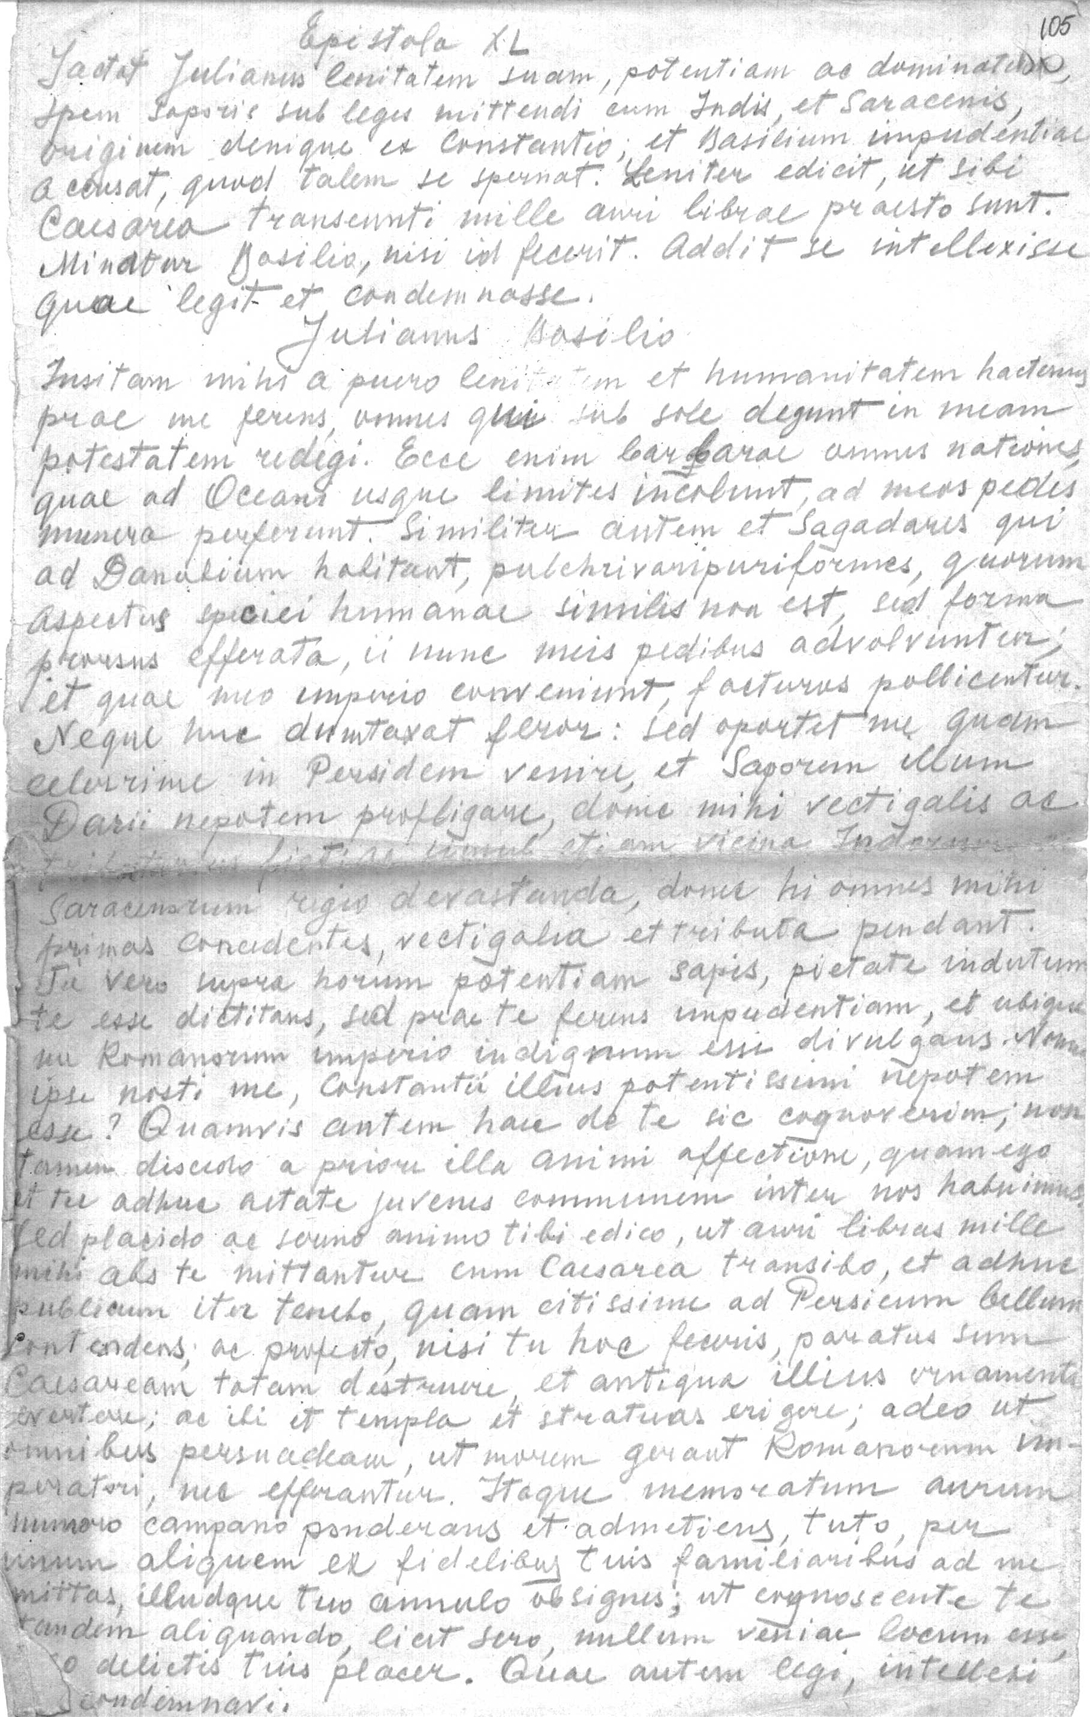 105
Epistola XL
Jactat Julianus lenitatem suam, potentiam ac dominatum,
spem Saporis sub leges mittendi cum Indis, et Saracenis,
originem denique ex Constantio; et Basilium impudentiae
accusat, quod talem se spernat. Leniter edicit, ut sibi
Caesarea transeunti mille auri librae praesto sunt.
Minatur Basilio, nisi id fecerit. Addit se intellexisse
quae legit et condemnasse.
Julianus Basilio
Insitam mihi a puero lenitatem et humanitatem hactenus
prae me ferens, omnes qui sub sole degunt in meam
potestatem redegi. Ecce enim barbarae omnes nationes,
quae ad Oceani usque limites incolunt, ad meos pedes
munera perferunt. Similiter autem et Sagadares qui
ad Danubium habitant, pulchrivaripuriformes, quorum
aspectus speciei humanae similis non est, sed forma
prorsus efferata, ii nunc meis pedibus advolvuntur;
et quae meo imperio conveniunt, facturos pollicentur.
Neque huc dumtaxat feror: sed oportet me quam
celerrime in Persidem venire, et Saporem illum
Darii nepotem profligare, donec mihi vectigalis ac
fiat ac simul etiam vicina Indorum
Saracenorum regio devastanda, donec hi omnes mihi
primas concedentes, vectigalia et tributa pendant.
Tu vero supra horum potentiam sapis, pietate indutum
te esse dictitans, sed prae te ferens impudentiam, et ubique
me Romanorum imperio indignum esse divulgans. Nonne
ipse nosti me, Constantii illius potentissimi nepotem
esse? Quamvis autem haec de te sic cognoverim; non
tamen discedo a priore illa animi affectione, quam ego
et tu adhuc aetate juvenes communem inter nos habuimus.
Sed placido ac sereno animo tibi edico, ut auri libras mille
mihi abs te mittantur cum Caesarea transibo, et adhuc
publicum iter tenebo, quam citissime ad Persicum bellum
contendens; ac profecto, nisi tu hoc feceris, paratus sum
Caesaream totam destruere, et antiqua illius ornamenta
evertere; ac ibi et templa et stratuas erigere; adeo ut
omnibus persuadeam, ut morem gerant Romanorum im-
peratori, nec efferantur. Itaque memoratum aurum
numero campano ponderans et admetiens, tuto, per
unum aliquem ex fidelibus tuis familiaribus ad me
mittas, illudque tuo annulo obsignes; ut cognoscente te
tandem aliquando, licet sero, nullum veniae locum esse,
delictis tuis placer. Quae autem legi, intellexi
condemnavi.